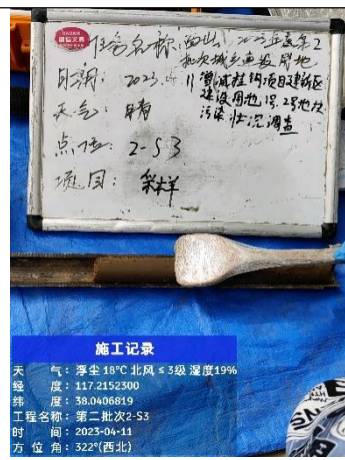 任务名称:
2023年度第2
批次城乡建设用地
日期: 2023.4.11
增减挂钩项目建新区
建设用地1号、2号地块
天气: 晴
污染状况调查
点位: 2-S3
项目: 采样
施工记录
天 气: 浮尘 18℃ 北风 ≤ 3级 湿度19%
经 度: 117.2152300
纬 度: 38.0406819
工程名称: 第二批次2-S3
时 间: 2023-04-11
方 位 角: 322°(西北)